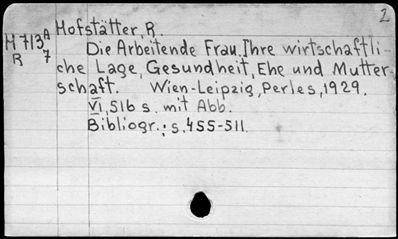 2
Hofstätter, R.
H 713 A
R 7
Die Arbeitende Frau. Ihre wirtschaftli-
che Lage, Gesundheit, Ehe und Mutter-
schaft. Wien-Leipzig, Perles, 1929.
VI, 516 s. mit Abb.
Bibliogr.: s. 455-511.